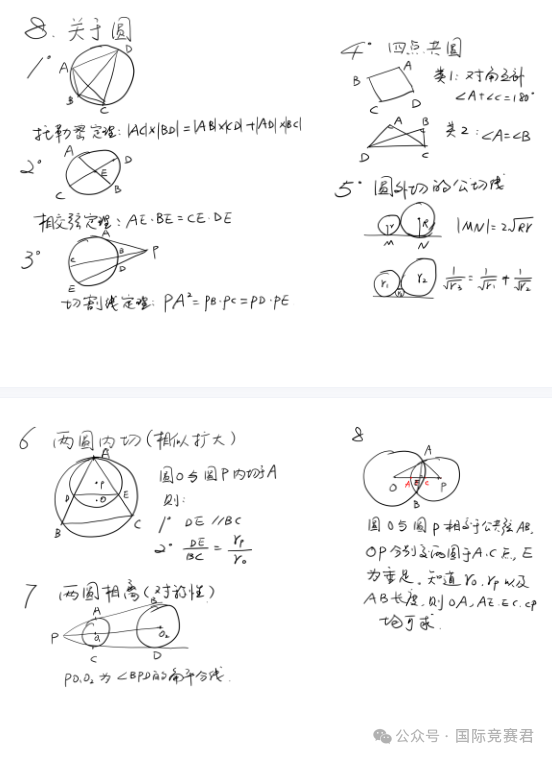 8. 关于圆
1°
A
D
B
C
托勒密定理: |AC|×|BD| = |AB|×|CD| + |AD|×|BC|
2°
A
D
E
C
B
相交弦定理: AE·BE = CE·DE
3°
A
B
P
C
D
E
切割线定理: PA² = PB·PC = PD·PE
4° 四点共圆
A
B
C
D
类1: 对角互补
∠A+∠C=180°
A
B
D
C
类2: ∠A=∠B
5° 圆外切的公切线
r
R
M
N
|MN| = 2√Rr
r₁
r₂
r₃
1/√r₃ = 1/√r₁ + 1/√r₂
6 两圆内切(相似扩大)
A
P
D
O
E
B
C
圆O与圆P内切于A
则:
1° DE // BC
2° DE/BC = rₚ/r₀
7 两圆相离(对称性)
A
B
P
O₁
O₂
C
D
PO₁O₂ 为 ∠BPD的角平分线.
8
A
O
A
E
C
P
B
圆O与圆P相交于公共弦AB,
OP分别交两圆于A.C点, E
为垂足. 知道r₀. rₚ以及
AB长度, 则OA, AE. EC. CP
均可求.
公众号·国际竞赛君